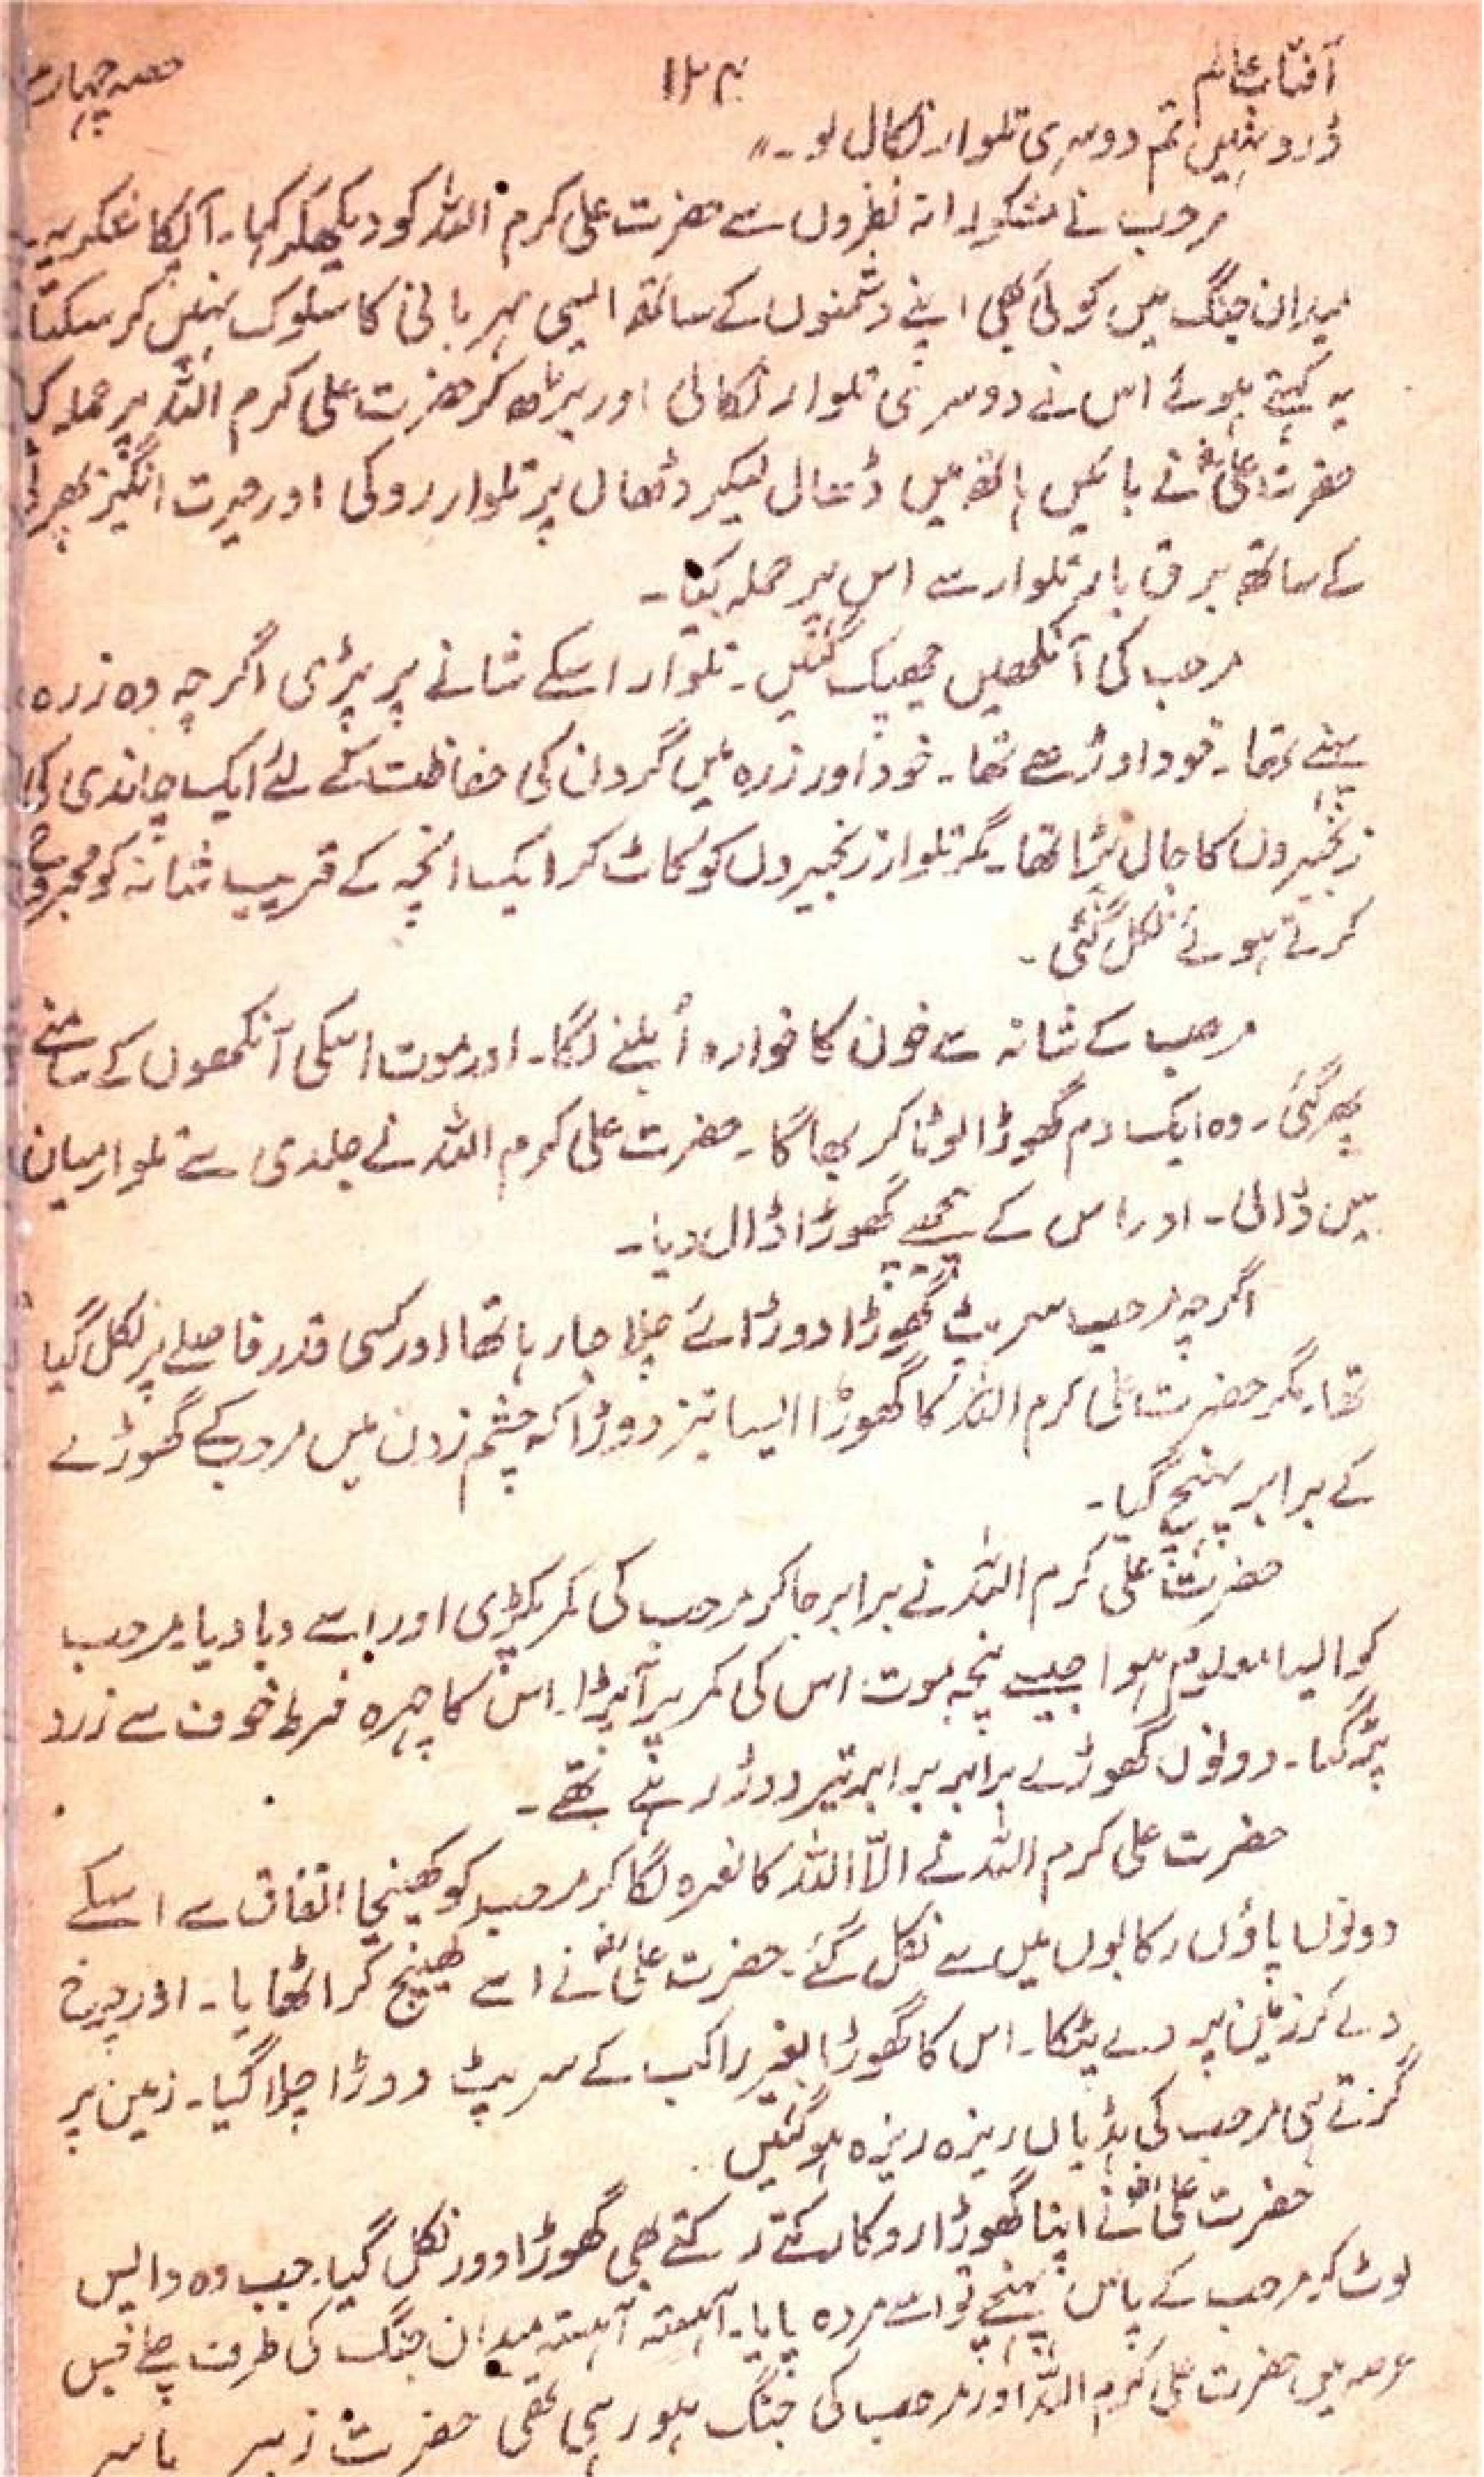 آفتاب عالم ۱۲۴ حصہ چہارم
ڈرو نہیں تم دوسری تلوار نکال لو۔"
مرحب نے مشکورانہ نظروں سے حضرت علی کرم اللہ کو دیکھکر کہا۔ آپکا شکریہ۔
میدان جنگ میں کوئی بھی اپنے دشمنوں کے ساتھ ایسی مہربانی کا سلوک نہیں کرسکتا
یہ کہتے ہوئے اس نے دوسری تلوار نکالی اور بڑھ کر حضرت علی کرم اللہ پر حملہ کیا
حضرت علیؓ نے بائیں ہاتھ میں ڈھال لیکر ڈھال پر تلوار روکی اور حیرت انگیز پھرتی
کے ساتھ برق بار تلوار سے اس پر حملہ کیا۔
مرحب کی آنکھیں جھپک گئیں۔ تلوار اسکے شانے پر پڑی اگرچہ وہ زرہ
پہنے تھا۔ خود اوڑھے تھا۔ خود اور زرہ میں گردن کی حفاظت کے لئے ایک چاندی کی
زنجیروں کا جال پڑا تھا۔ مگر تلوار زنجیروں کو کاٹ کر ایک انچہ کے قریب شانہ کو مجروح
کرتے ہوئے نکل گئی۔
مرحب کے شانہ سے خون کا فوارہ اُبلنے لگا۔ اور موت اسکی آنکھوں کے سامنے
پھر گئی۔ وہ ایک دم گھوڑا لوٹا کر بھاگا۔ حضرت علی کرم اللہ نے جلدی سے تلوار میان
میں ڈالی۔ اور اس کے پیچھے گھوڑا ڈال دیا۔
اگرچہ مرحب سرپٹ گھوڑا دوڑائے چلا جا رہا تھا اور کسی قدر فاصلے پر نکل گیا
تھا۔ مگر حضرت علی کرم اللہ کا گھوڑا ایسا تیز دوڑا کہ چشم زدن میں مرحب کے گھوڑے
کے برابر پہنچ گیا۔
حضرت علی کرم اللہ نے برابر جا کر مرحب کی کمر پکڑی اور اسے دبا دیا۔ مرحب
کو ایسا معلوم ہوا جیسے پنجہ موت اس کی کمر پر آپڑا۔ اس کا چہرہ فرط خوف سے زرد
پڑ گیا۔ دونوں گھوڑے برابر برابر تیز دوڑ رہے تھے۔
حضرت علی کرم اللہ نے الّا اللہ کا نعرہ لگا کر مرحب کو کھینچا اتفاق سے اسکے
دونوں پاؤں رکابوں میں سے نکل گئے۔ حضرت علیؓ نے اسے کھینچ کر اٹھایا۔ اور چرخ
دے کر زمین پر دے پٹکا۔ اس کا گھوڑا بغیر راکب کے سرپٹ دوڑا چلا گیا۔ زمین پر
گرتے ہی مرحب کی ہڈیاں ریزہ ریزہ ہوگئیں
حضرت علیؓ نے اپنا گھوڑا روکا رکتے رکتے بھی گھوڑا دور نکل گیا۔ جب وہ واپس
لوٹ کر مرحب کے پاس پہنچے تو اسے مردہ پایا۔ آہستہ آہستہ میدان جنگ کی طرف چلے جس
عرصہ میں حضرت علی کرم اللہ اور مرحب کی جنگ ہو رہی تھی حضرت زبیر یاسر